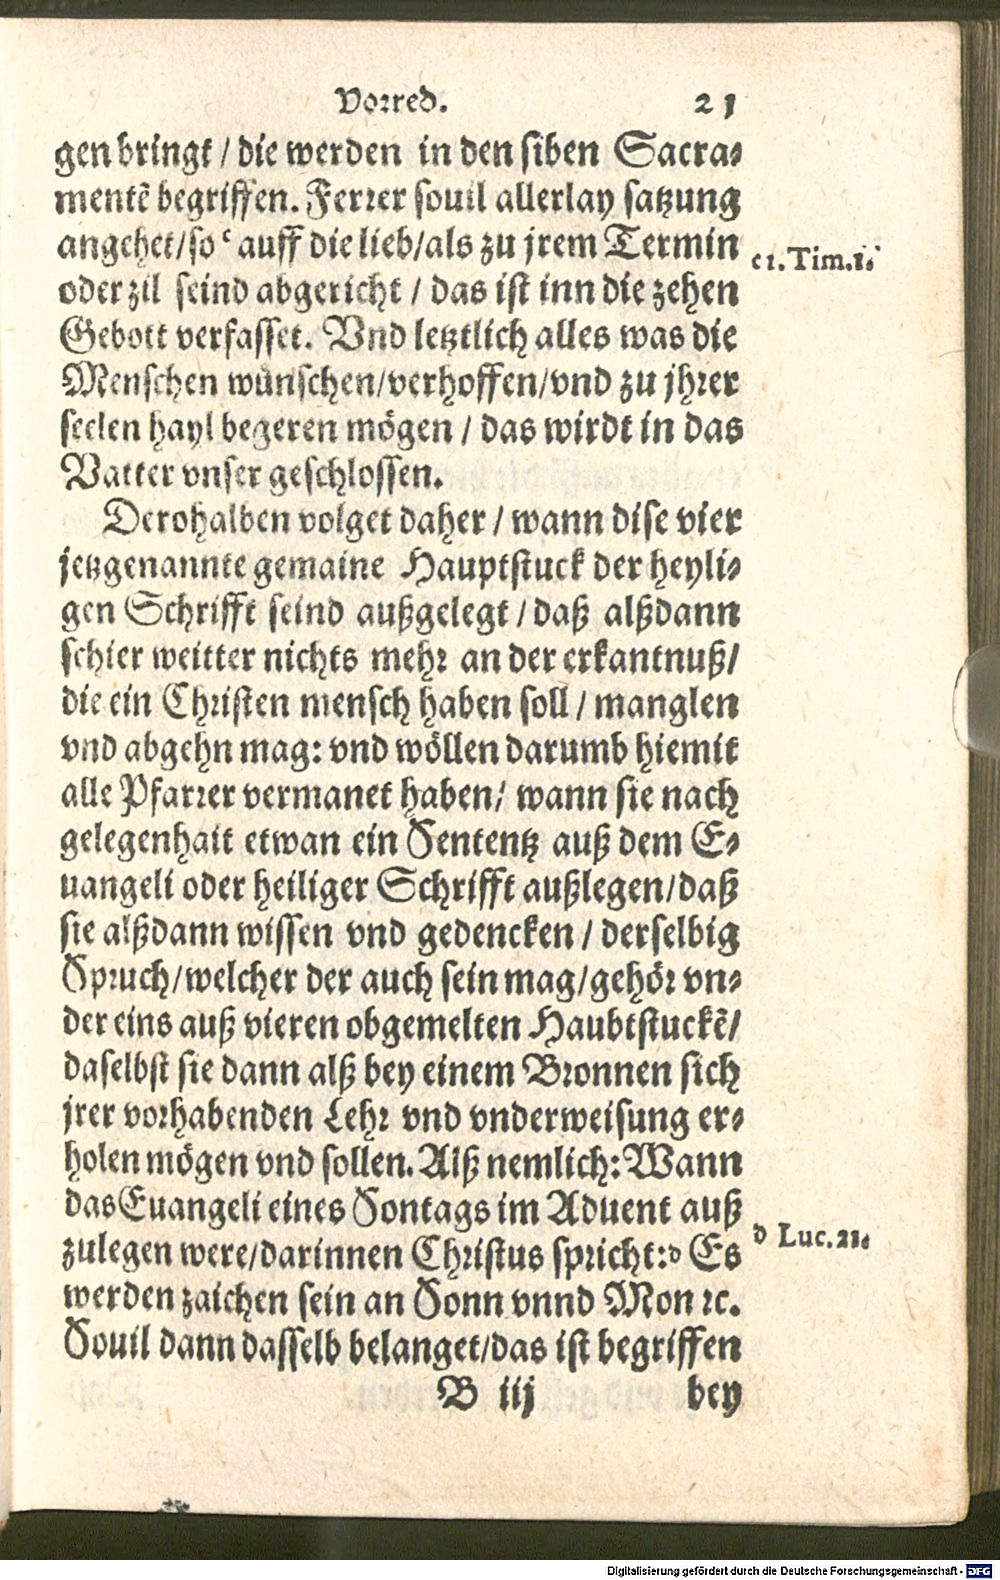 Vorred. 21
gen bringt / die werden in den siben Sacra⸗
mentẽ begriffen. Ferrer souil allerlay satzung
angehet/so ᶜ auff die lieb/als zu jrem Termin
c 1. Tim. 1.
oder zil seind abgericht / das ist inn die zehen
Gebott verfasset. Vnd letztlich alles was die
Menschen wünschen/verhoffen/vnd zu jhrer
seelen hayl begeren mögen / das wirdt in das
Vatter vnser geschlossen.
Derohalben volget daher / wann dise vier
jetzgenannte gemaine Hauptstuck der heyli⸗
gen Schrifft seind außgelegt / daß alßdann
schier weitter nichts mehr an der erkantnuß/
die ein Christen mensch haben soll / manglen
vnd abgehn mag: vnd wöllen darumb hiemit
alle Pfarrer vermanet haben/ wann sie nach
gelegenhait etwan ein Sententz auß dem E⸗
uangeli oder heiliger Schrifft außlegen/daß
sie alßdann wissen vnd gedencken / derselbig
Spruch/welcher der auch sein mag/gehör vn⸗
der eins auß vieren obgemelten Haubtstuckẽ/
daselbst sie dann alß bey einem Bronnen sich
jrer vorhabenden Lehr vnd vnderweisung er⸗
holen mögen vnd sollen. Alß nemlich: Wann
das Euangeli eines Sontags im Aduent auß
zulegen were/darinnen Christus spricht:ᵈ Es
d Luc. 21.
werden zaichen sein an Sonn vnnd Mon ꝛc.
Souil dann dasselb belanget/das ist begriffen
B iij bey
Digitalisierung gefördert durch die Deutsche Forschungsgemeinschaft - DFG